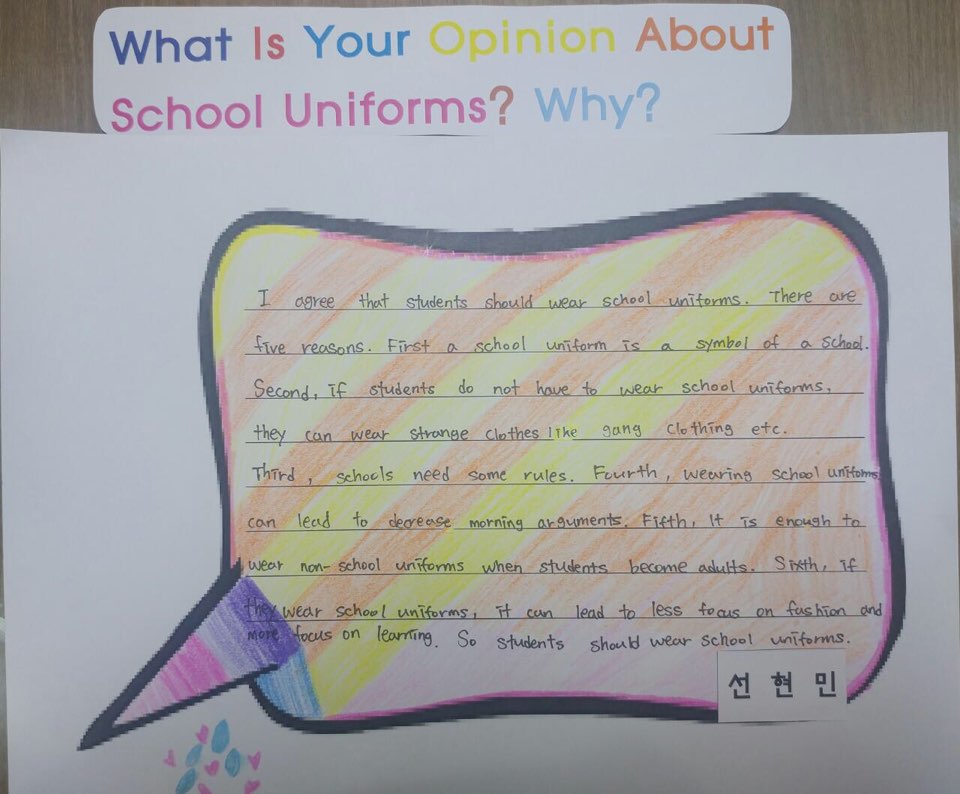 What Is Your Opinion About
School Uniforms? Why?
I agree that students should wear school uniforms. There are
five reasons. First a school uniform is a symbol of a school.
Second, if students do not have to wear school uniforms,
they can wear strange clothes like gang clothing etc.
Third, schools need some rules. Fourth, wearing school uniforms
can lead to decrease morning arguments. Fifth, It is enough to
wear non-school uniforms when students become adults. Sixth, if
they wear school uniforms, it can lead to less focus on fashion and
more focus on learning. So students should wear school uniforms.
선 현 민